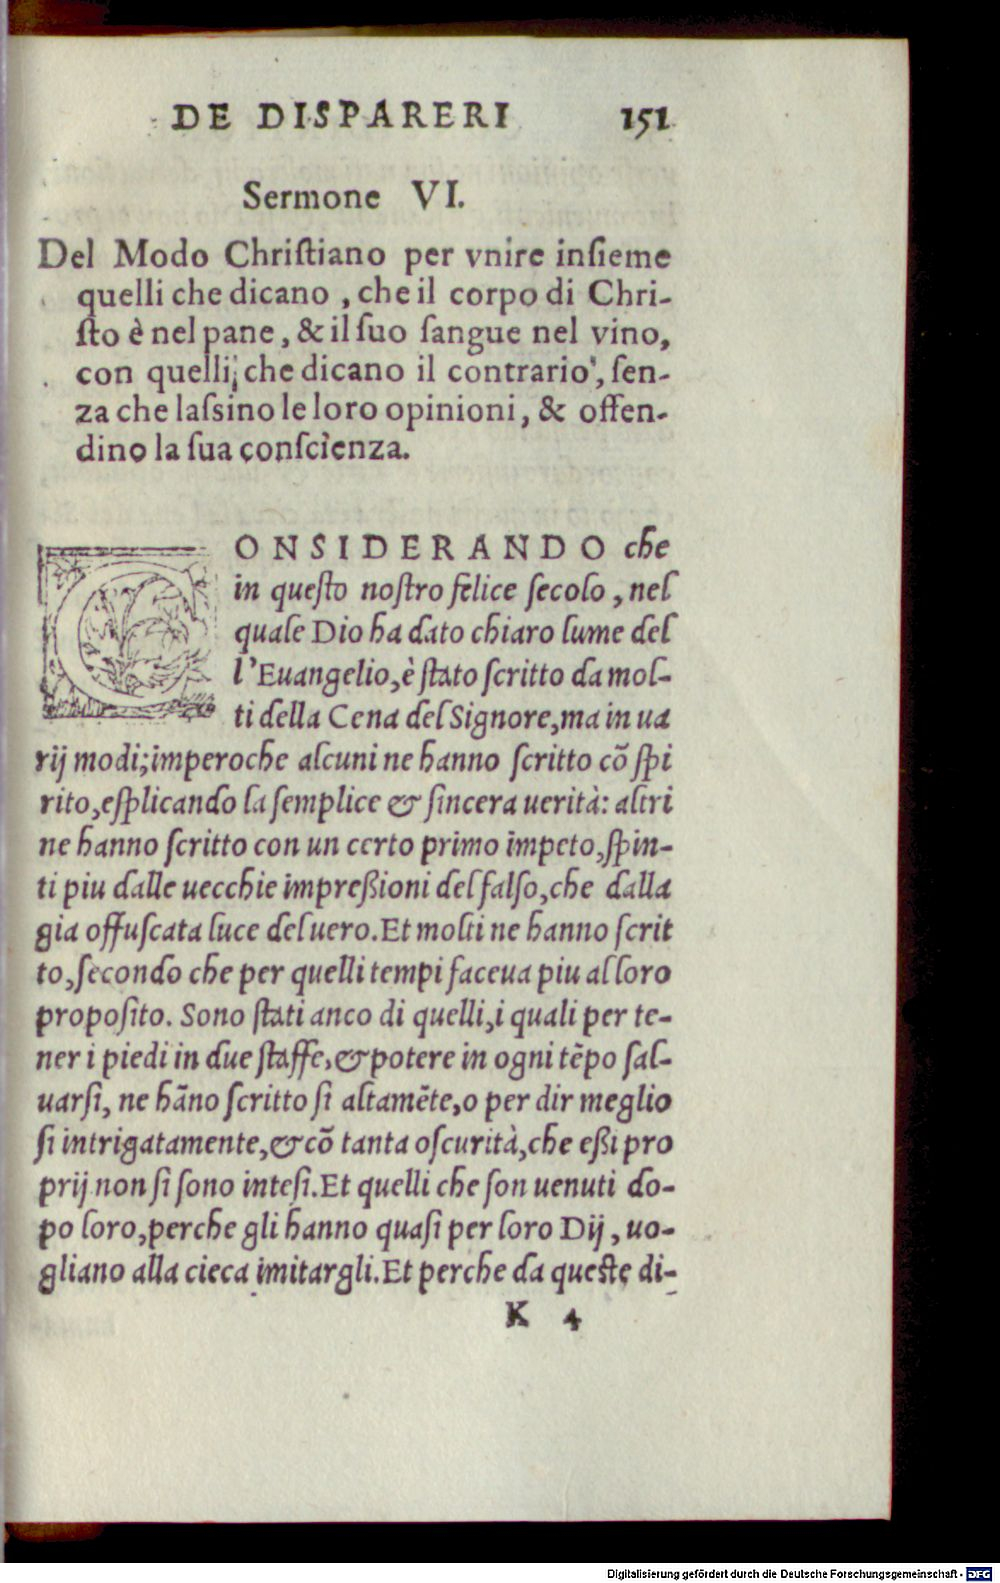 DE DISPARERI 151
Sermone VI.
Del Modo Chriſtiano per vnire inſieme
quelli che dicano , che il corpo di Chri-
ſto è nel pane , & il ſuo ſangue nel vino,
con quelli, che dicano il contrario, ſen-
za che laſsino le loro opinioni , & offen-
dino la ſua conſcienza.
CONSIDERANDO che
in queſto noſtro felice ſecolo , nel
quale Dio ha dato chiaro lume del
l'Euangelio, è ſtato ſcritto da mol-
ti della Cena del Signore, ma in ua
rij modi; imperoche alcuni ne hanno ſcritto cõ ſpi
rito, eſplicando la ſemplice & ſincera uerità: altri
ne hanno ſcritto con un certo primo impeto, ſpin-
ti piu dalle uecchie impreßioni del falſo, che dalla
gia offuſcata luce del uero. Et molti ne hanno ſcrit
to, ſecondo che per quelli tempi faceua piu al loro
propoſito. Sono ſtati anco di quelli, i quali per te-
ner i piedi in due ſtaffe, & potere in ogni tẽpo ſal-
uarſi, ne hãno ſcritto ſi altamẽte, o per dir meglio
ſi intrigatamente, & cõ tanta oſcurità, che eßi pro
prij non ſi ſono inteſi. Et quelli che ſon uenuti do-
po loro, perche gli hanno quaſi per loro Dij, uo-
gliano alla cieca imitargli. Et perche da queſte di-
K 4
Digitalisierung gefördert durch die Deutsche Forschungsgemeinschaft - DFG